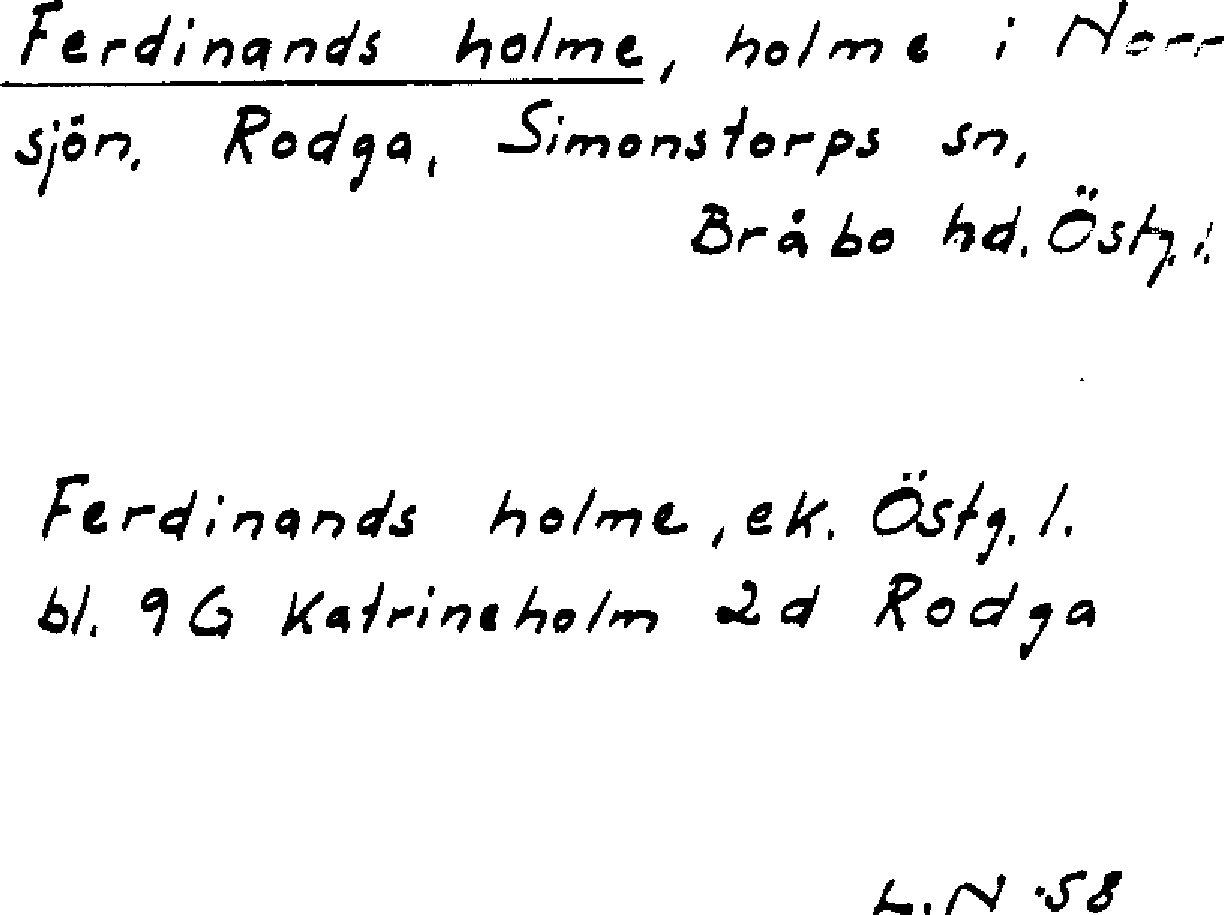 Ferdinands holme, holme i Norr
sjön. Rodga, Simonstorps sn,
Bråbo hd. Östg.l.
Ferdinands holme, ek. Östg.l.
bl. 9G Katrineholm 2d Rodga
L.N 58